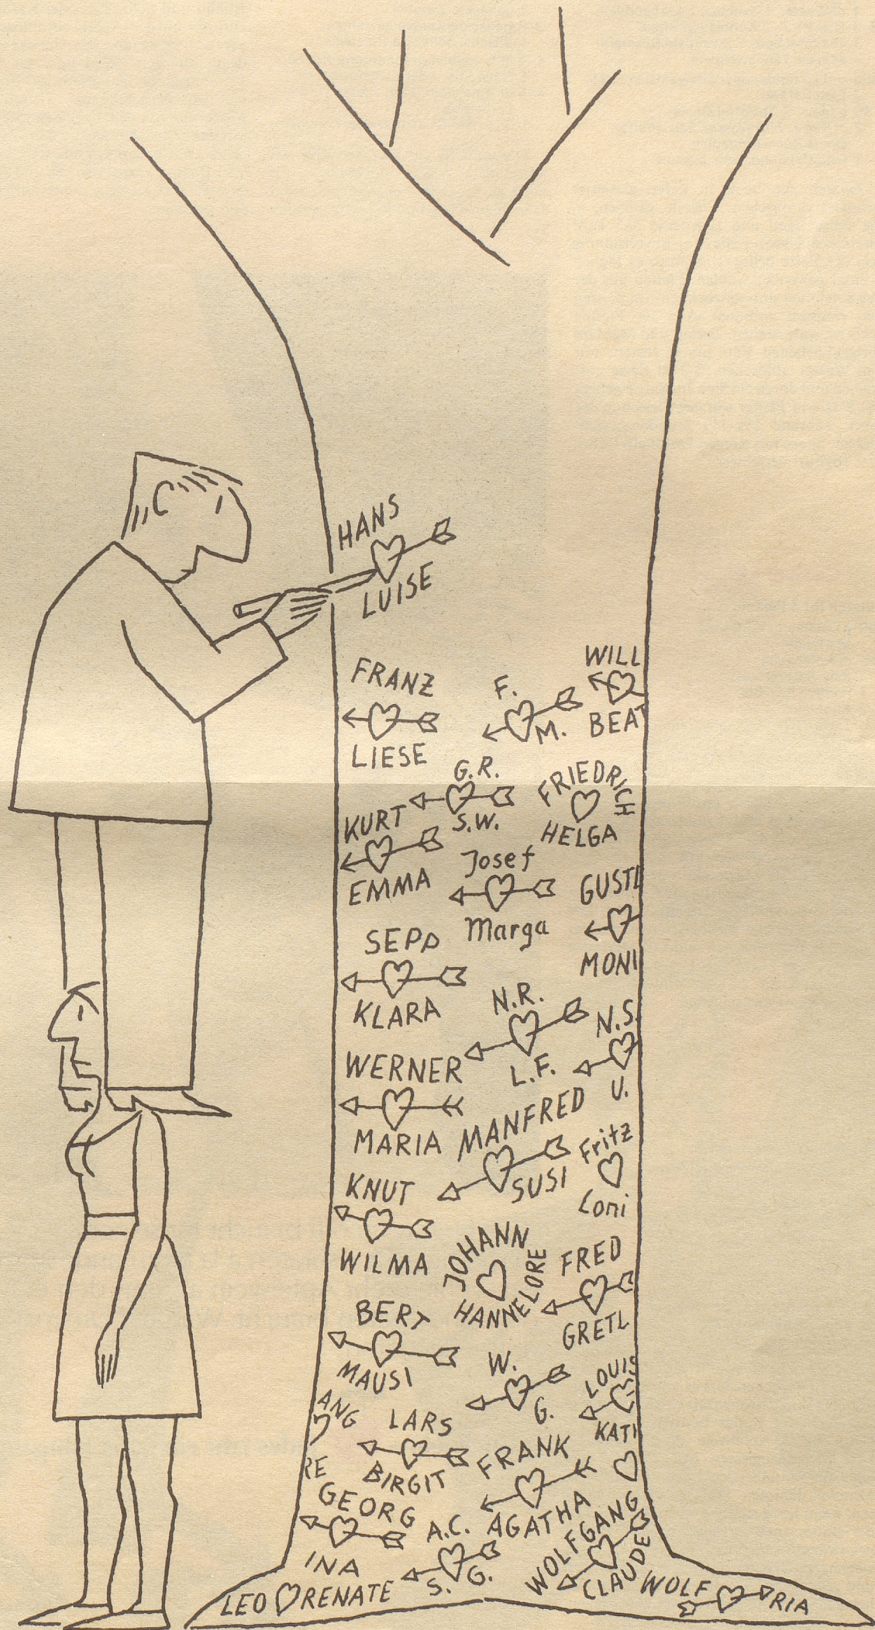 HANS
LUISE
FRANZ
LIESE
F.
M.
WILL
BEAT
G.R.
S.W.
FRIEDRICH
HELGA
KURT
EMMA
Josef
Marga
GUSTL
MONI
SEPP
KLARA
N.R.
L.F.
N.S.
U.
WERNER
MARIA
MANFRED
SUSI
Fritz
Loni
KNUT
WILMA
JOHANN
HANNELORE
FRED
GRETL
BERT
MAUSI
W.
G.
LOUIS
KATI
ANG
RE
LARS
BIRGIT
FRANK
AGATHA
GEORG
INA
A.C.
S.G.
WOLFGANG
CLAUDE
LEO RENATE
WOLF
RIA